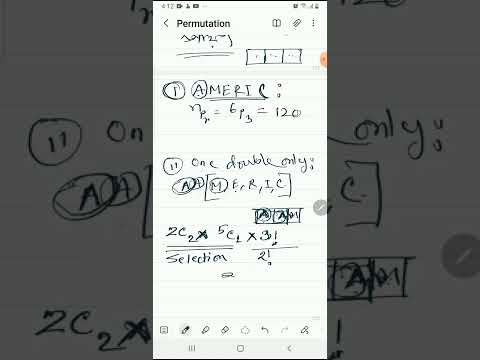 4:12
Permutation
① AMERIC:
ⁿPᵣ = ⁶P₃ = 120
⑪ One double only:
A A [M, E, R, I, C]
A A M
2C₂ × ⁵C₁ × 3!
Selection 2!
=